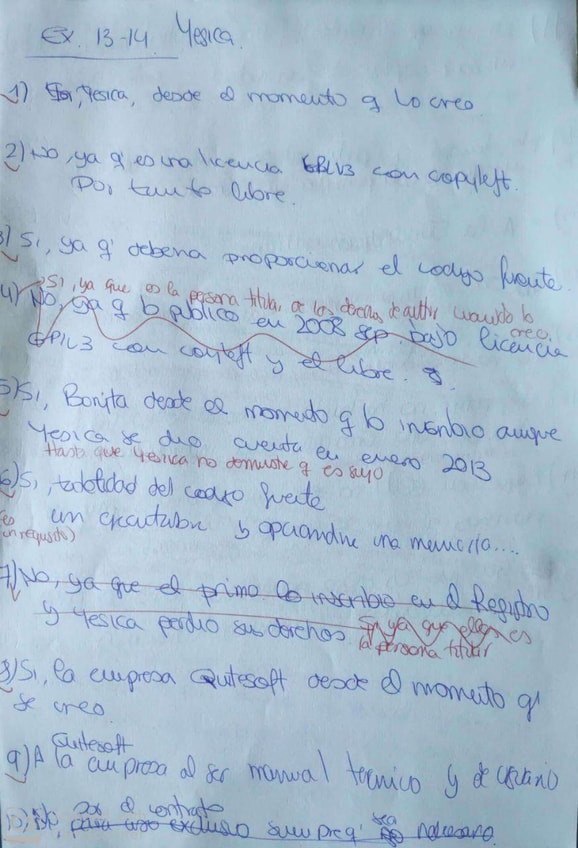 Ex. 13-14. Yesica.
1) Yesica, desde el momento q lo creo
2) No, ya q' es una licencia GPLV3 con copyleft.
Por tanto libre.
3) Si, ya q' deberia proporcionar el codigo fuente.
Si, ya que es la persona titular de los derechos de autor cuando lo creo.
4) No, ya q lo publico en 2008 sep. bajo licencia
GPL3 con copyleft y el libre.
5) Si, Bonita desde el momento q lo inscribio aunque
Yesica se dio cuenta en enero 2013
Hasta que Yesica no demuestre q es suyo
6) Si, totalidad del codigo fuente
(es un requisito)
un ejecutable y opcionalme una memoria....
7) No, ya que el primo lo inscribio en el Registro
y Yesica perdio sus derechos. Si ya que ella es
la persona titular
8) Si, la empresa Qutesoft desde el momento q'
se creo.
Qutesoft
9) A la empresa al ser manual tecnico y de usuario
por el contrato
10) No, para uso exclusivo sea necesario.